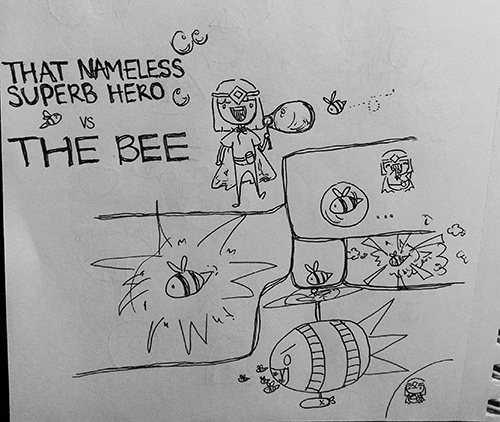 THAT NAMELESS
SUPERB HERO
VS
THE BEE
...